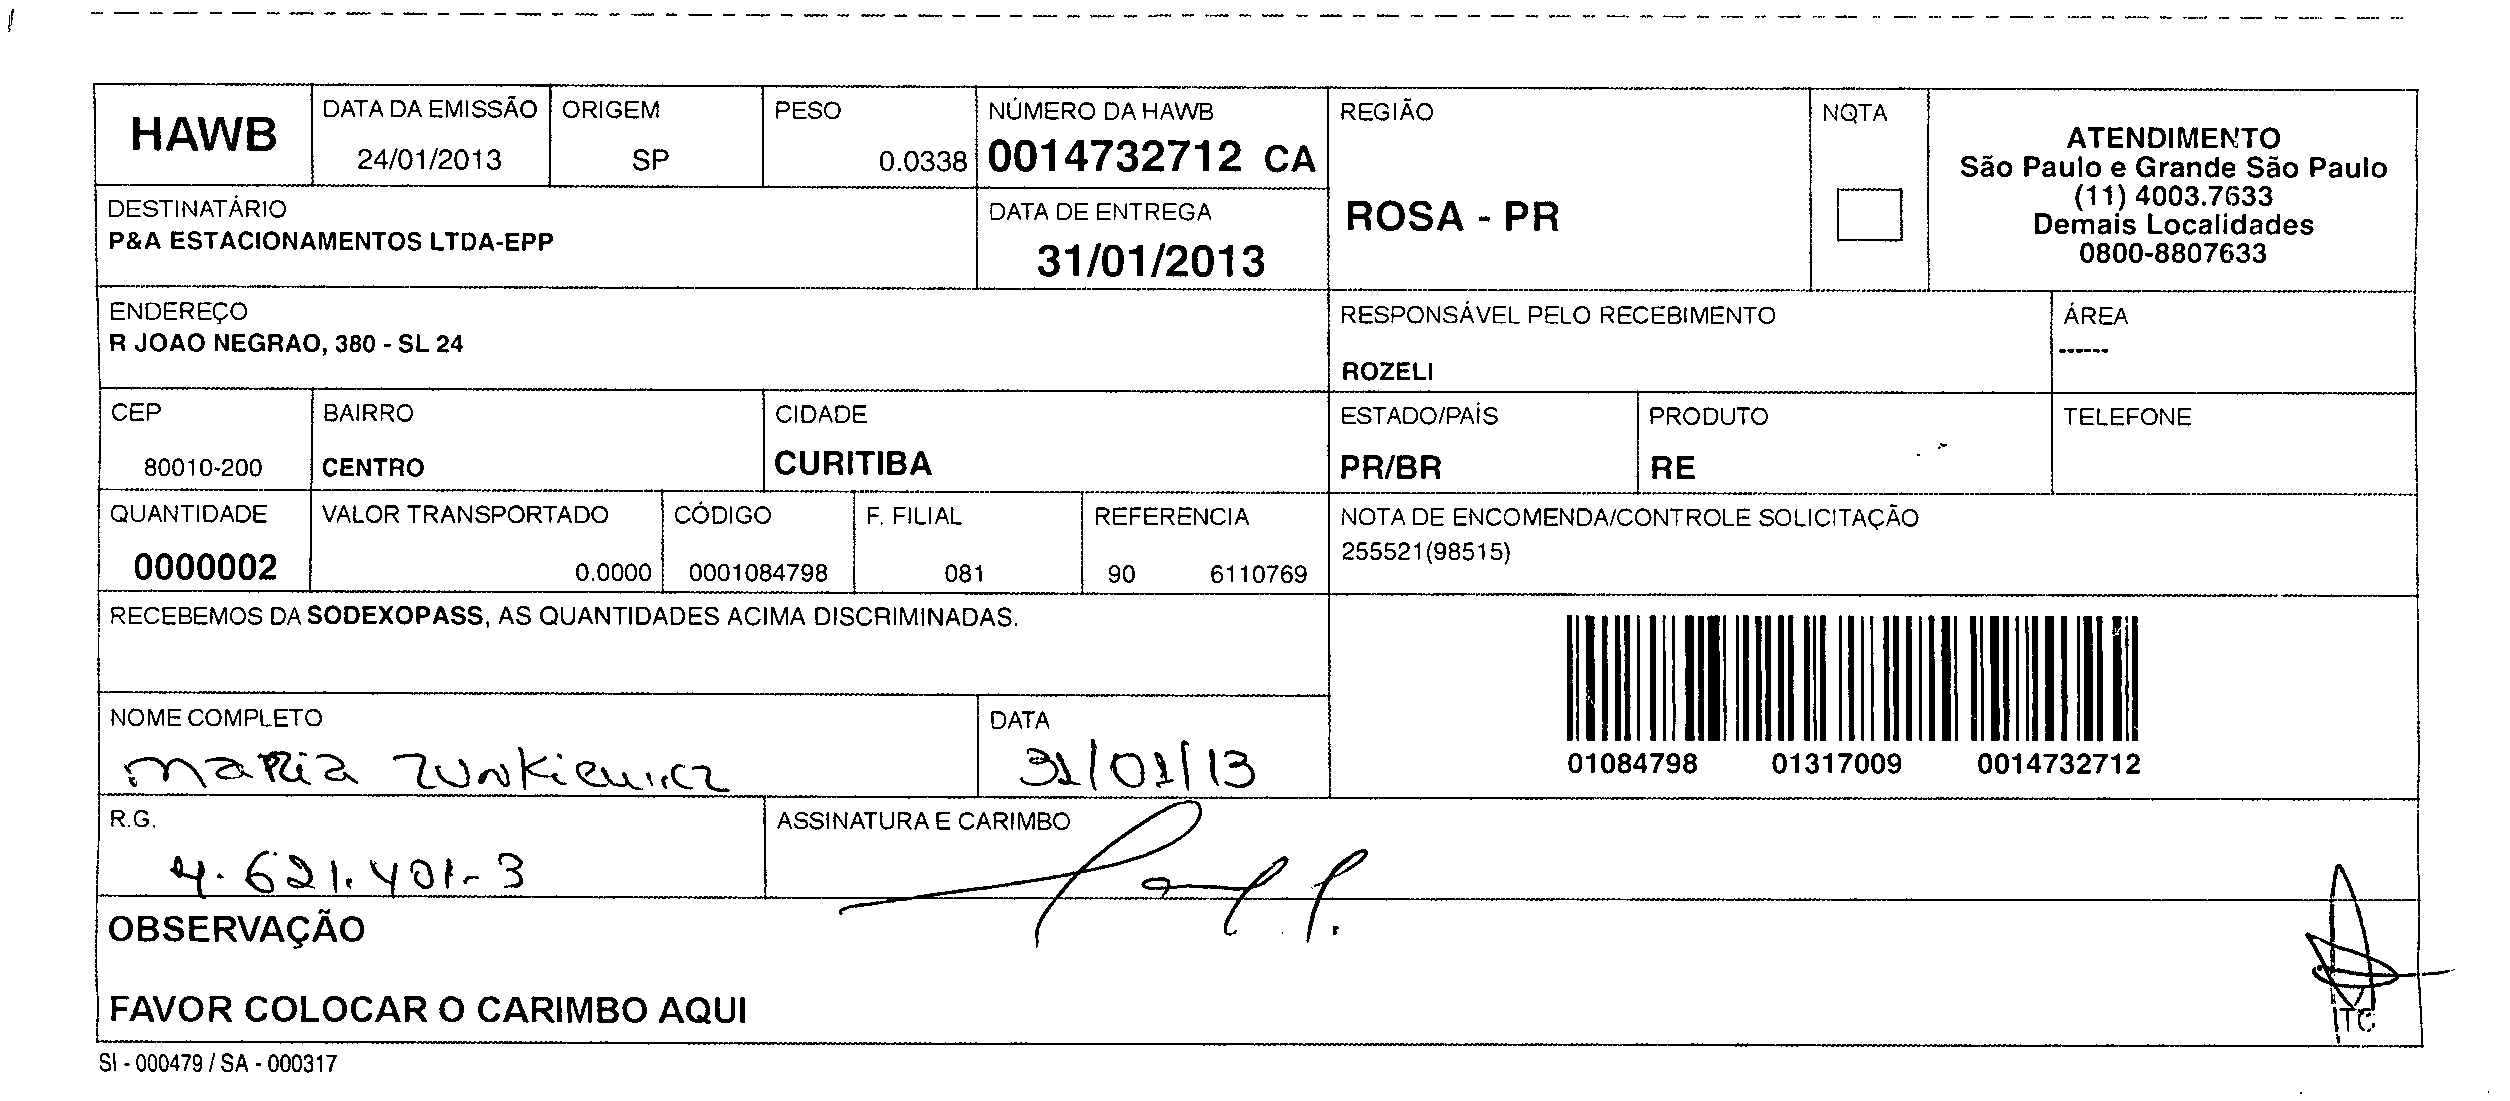 HAWB
DATA DA EMISSÃO
24/01/2013
ORIGEM
SP
PESO
0.0338
NÚMERO DA HAWB
0014732712 CA
REGIÃO
ROSA - PR
NQTA
ATENDIMENTO
São Paulo e Grande São Paulo
(11) 4003.7633
Demais Localidades
0800-8807633
DESTINATÁRIO
P&A ESTACIONAMENTOS LTDA-EPP
DATA DE ENTREGA
31/01/2013
ENDEREÇO
R JOAO NEGRAO, 380 - SL 24
RESPONSÁVEL PELO RECEBIMENTO
ROZELI
ÁREA
------
CEP
80010-200
BAIRRO
CENTRO
CIDADE
CURITIBA
ESTADO/PAÍS
PR/BR
PRODUTO
RE
TELEFONE
QUANTIDADE
0000002
VALOR TRANSPORTADO
0.0000
CÓDIGO
0001084798
F. FILIAL
081
REFERENCIA
90 6110769
NOTA DE ENCOMENDA/CONTROLE SOLICITAÇÃO
255521(98515)
RECEBEMOS DA SODEXOPASS, AS QUANTIDADES ACIMA DISCRIMINADAS.
01084798 01317009 0014732712
NOME COMPLETO
Maria
DATA
31/01/13
R.G.
4.621.401-3
ASSINATURA E CARIMBO
OBSERVAÇÃO
FAVOR COLOCAR O CARIMBO AQUI
SI - 000479 / SA - 000317